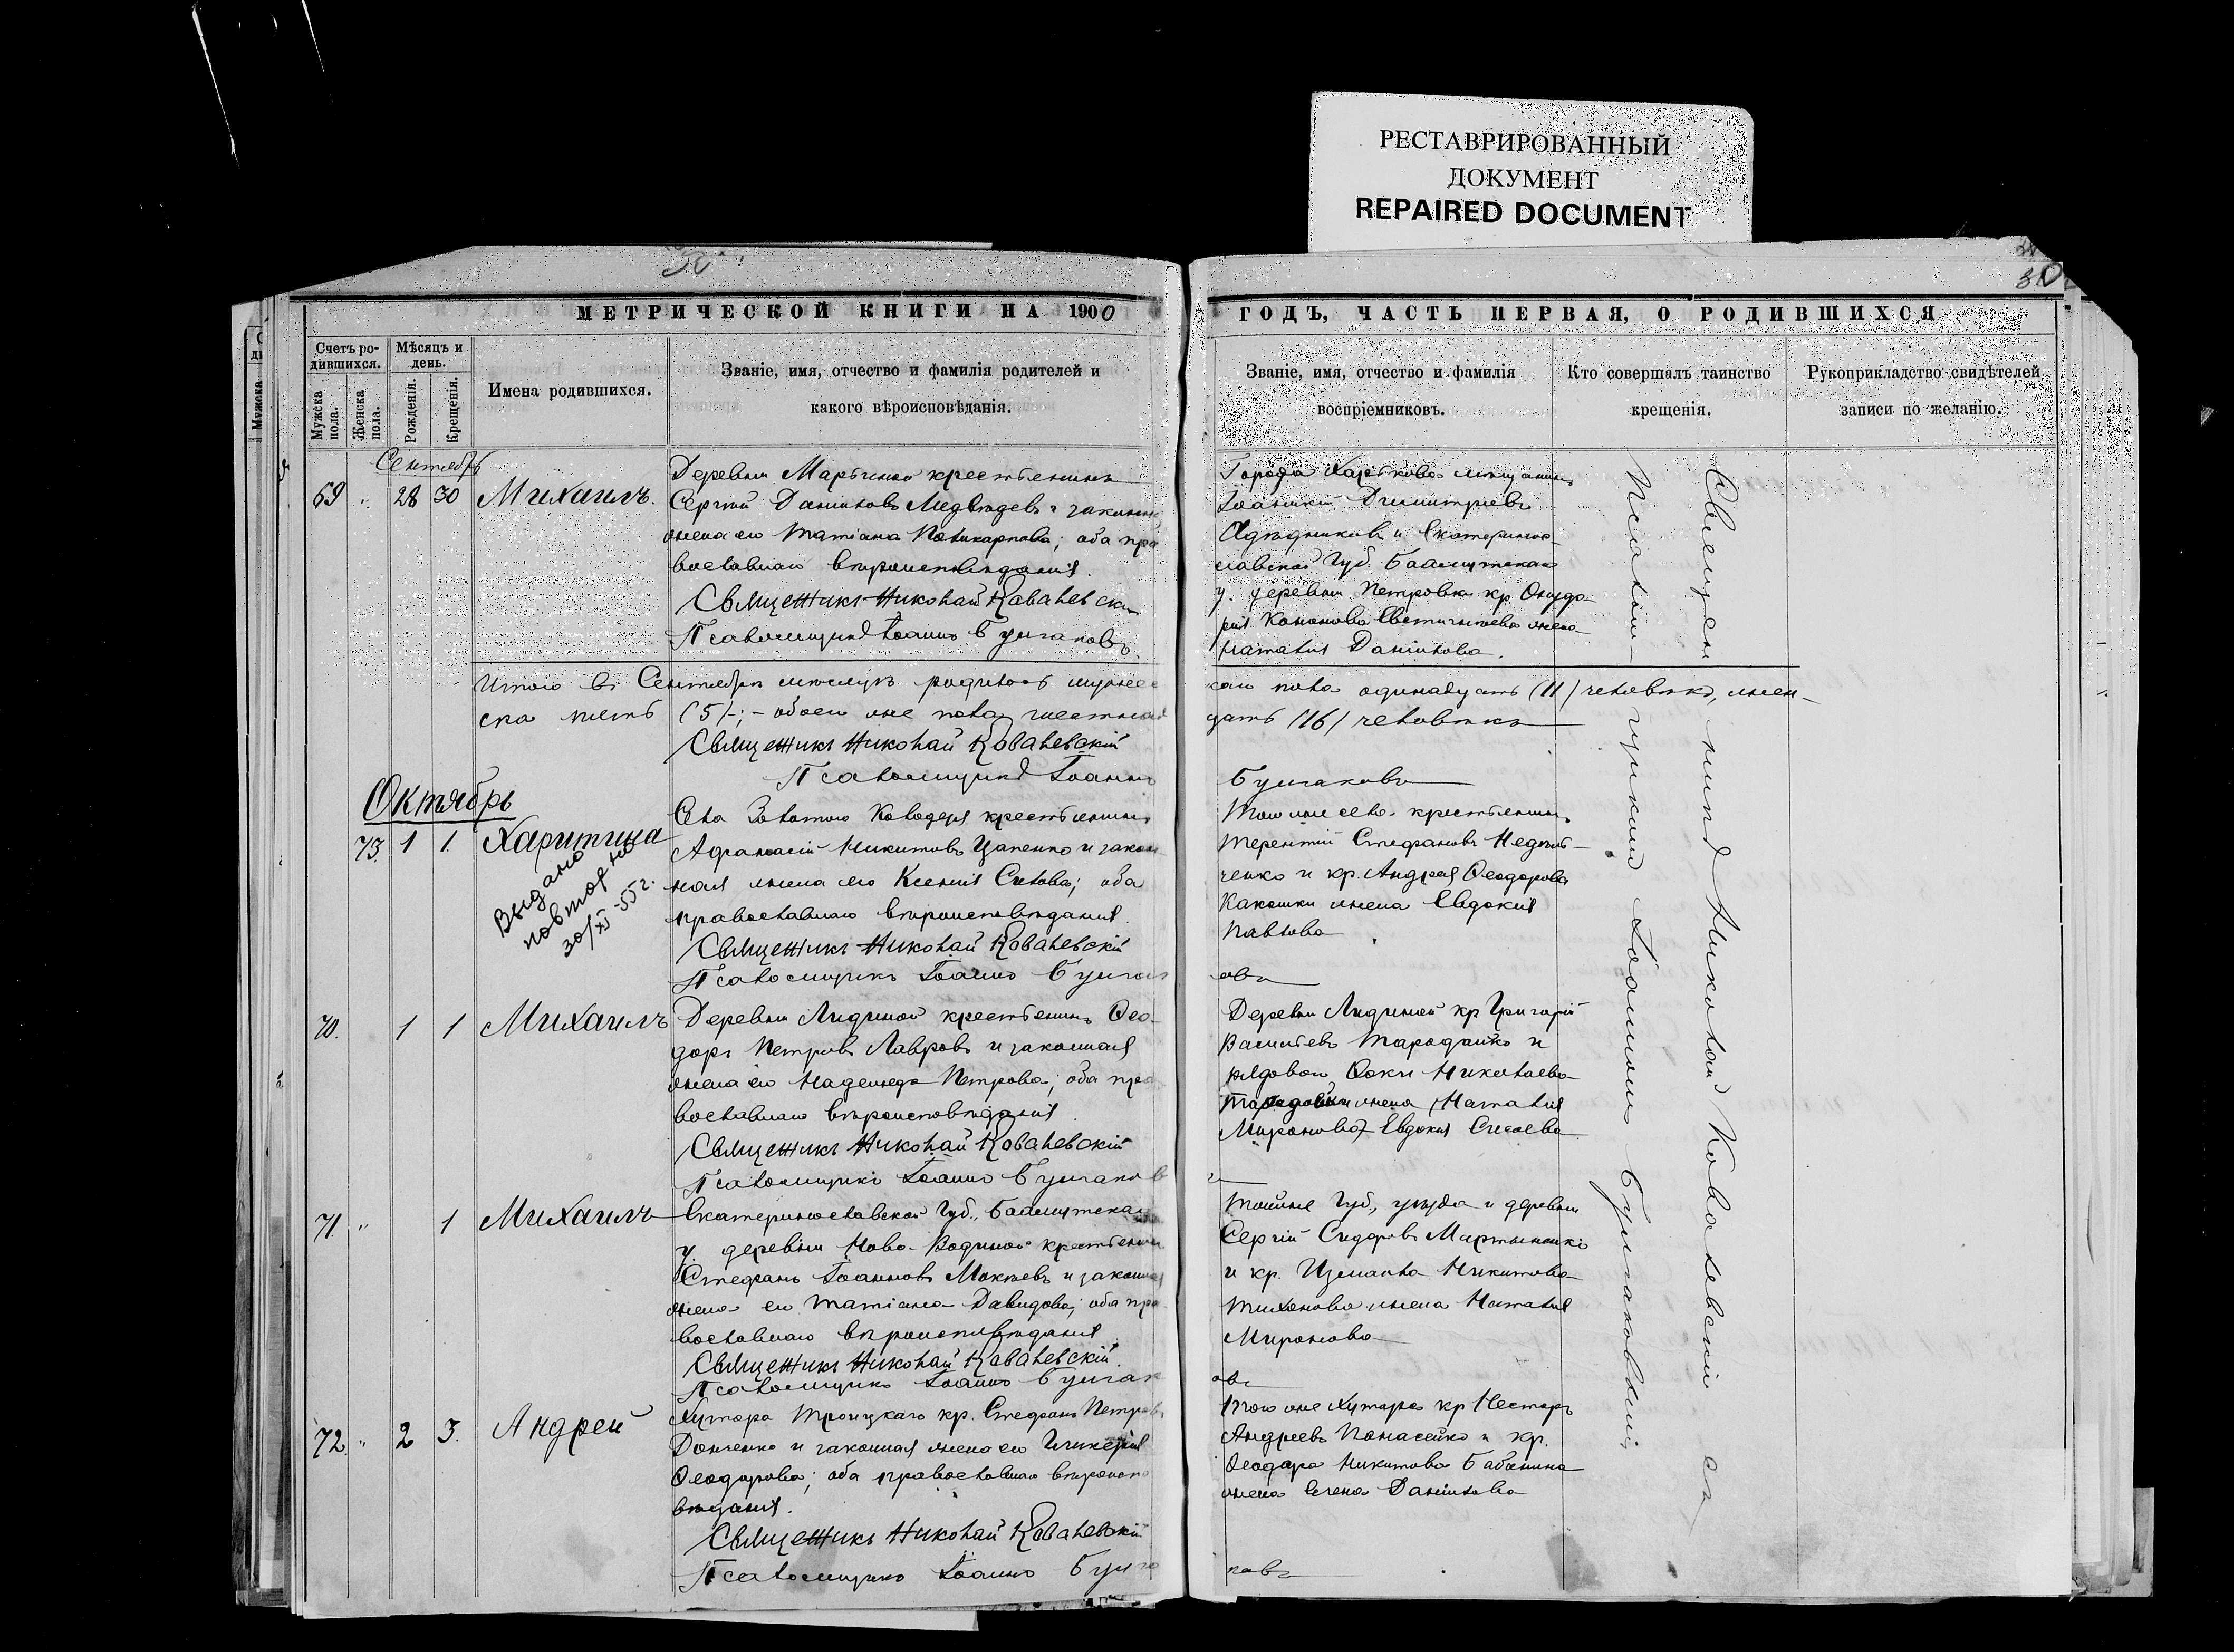 РЕСТАВРИРОВАННЫЙ
ДОКУМЕНТ
REPAIRED DOCUMENT
МЕТРИЧЕСКОЙ КНИГИ НА 1900
Счетъ ро-
дившихся.
Мѣсяцъ и
день.
Мужска
пола.
Женска
пола.
Рожденія.
Крещенія.
Имена родившихся.
Званіе, имя, отчество и фамилія родителей и
какого вѣроисповѣданія.
Сентябрь
69 " 28 30 Михаилъ.
Деревни Марьиной крестьянинъ
Сергій Даніиловъ Медвѣдевъ и законная
жена его Татіана Поликарпова; оба пра
вославнаго вѣроисповѣданія.
Священникъ Николай Ковалевскій
Псаломщикъ Іоаннъ Булгаковъ.
Итого въ Сентябрѣ мѣсяцѣ родилось мужес
ска пять (5); – обоего же пола шестнад
Священникъ Николай Ковалевскій
Псаломщикъ Іоаннъ
Октябрь
73. 1 1. Харитина
Выдано
повторно
30/XI-55 г.
Села Золотого Колодезя крестьянинъ
Афанасій Никитовъ Цапенко и закон
ная жена его Ксенія; оба
православнаго вѣроисповѣданія.
Священникъ Николай Ковалевскій
Псаломщикъ Іоаннъ Булгак
70. 1 1 Михаилъ
Деревни Лидиной крестьянинъ Ѳео-
доръ Петровъ Лавровъ и законная
жена его Надежда Петрова; оба пра
вославнаго вѣроисповѣданія.
Священникъ Николай Ковалевскій
Псаломщикъ Іоаннъ Булгаков
71. " 1 Михаилъ
Екатеринославской Губ., Бахмутскаго
у. деревни Ново-Водяной крестьянинъ
Стефанъ Іоанновъ Мокѣевъ и законная
жена его Татіана Давидова; оба пра
вославнаго вѣроисповѣданія.
Священникъ Николай Ковалевскій.
Псаломщикъ Іоаннъ Булгак
72. " 2 3. Андрей
Хутора Троицкаго кр. Стефанъ Петровъ
Донченко и законная жена его Гликерія
Ѳеодорова; оба православнаго вѣроиспо
вѣданія.
Священникъ Николай Ковалевскій
Псаломщикъ Іоаннъ Булга
30
ГОДЪ, ЧАСТЬ ПЕРВАЯ, О РОДИВШИХСЯ
Званіе, имя, отчество и фамилія
воспріемниковъ.
Кто совершалъ таинство
крещенія.
Рукоприкладство свидѣтелей
записи по желанію.
Города Харькова мѣщанинъ
Іоанникій Димитріевъ
и Екатерино-
славской Губ. Бахмутскаго
у. деревни Петровки кр.
Кононова жена
Наталія Даніилова.
каго пола одинадцать (11) человѣкъ, жен-
цать (16) человѣкъ
Булгаковъ
Того же села крестьянинъ
Терентій Стефановъ
и кр. Андрея Ѳеодорова
жена Евдокія
Павлова
овъ
Деревни Лидиной кр Григорій
Васильевъ Тарадайко и
рядового Фоки Николаева
жена Наталія
Миронова Евдокія Сысоева
ъ
Той же Губ., уѣзда и деревни
Сергій Сидоровъ Мартыненко
и кр. Измаила Никитова
Тихонова жена Наталія
Миронова
овъ
Того же Хутора кр Несторъ
Андреевъ Панасейко и кр.
Ѳеодора Никитова Бабанина
жена Елена Даніилова
ковъ
Священникъ Николай Ковалевскій съ
Псаломщикомъ Іоанномъ Булгаковымъ